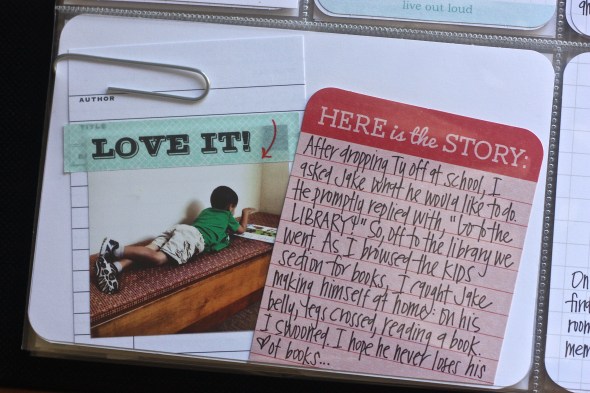 live out loud
AUTHOR
TITLE
LOVE IT!
HERE is the STORY:
After dropping Ty off at school, I
asked Jake what he would like to do.
He promptly replied with, "Go to the
LIBRARY!" So, off to the library we
went. As I browsed the KIDS
section for books, I caught Jake
making himself at home: on his
belly, legs crossed, reading a book.
I swooned. I hope he never loses his
♡ of books...
On
find
room
mem